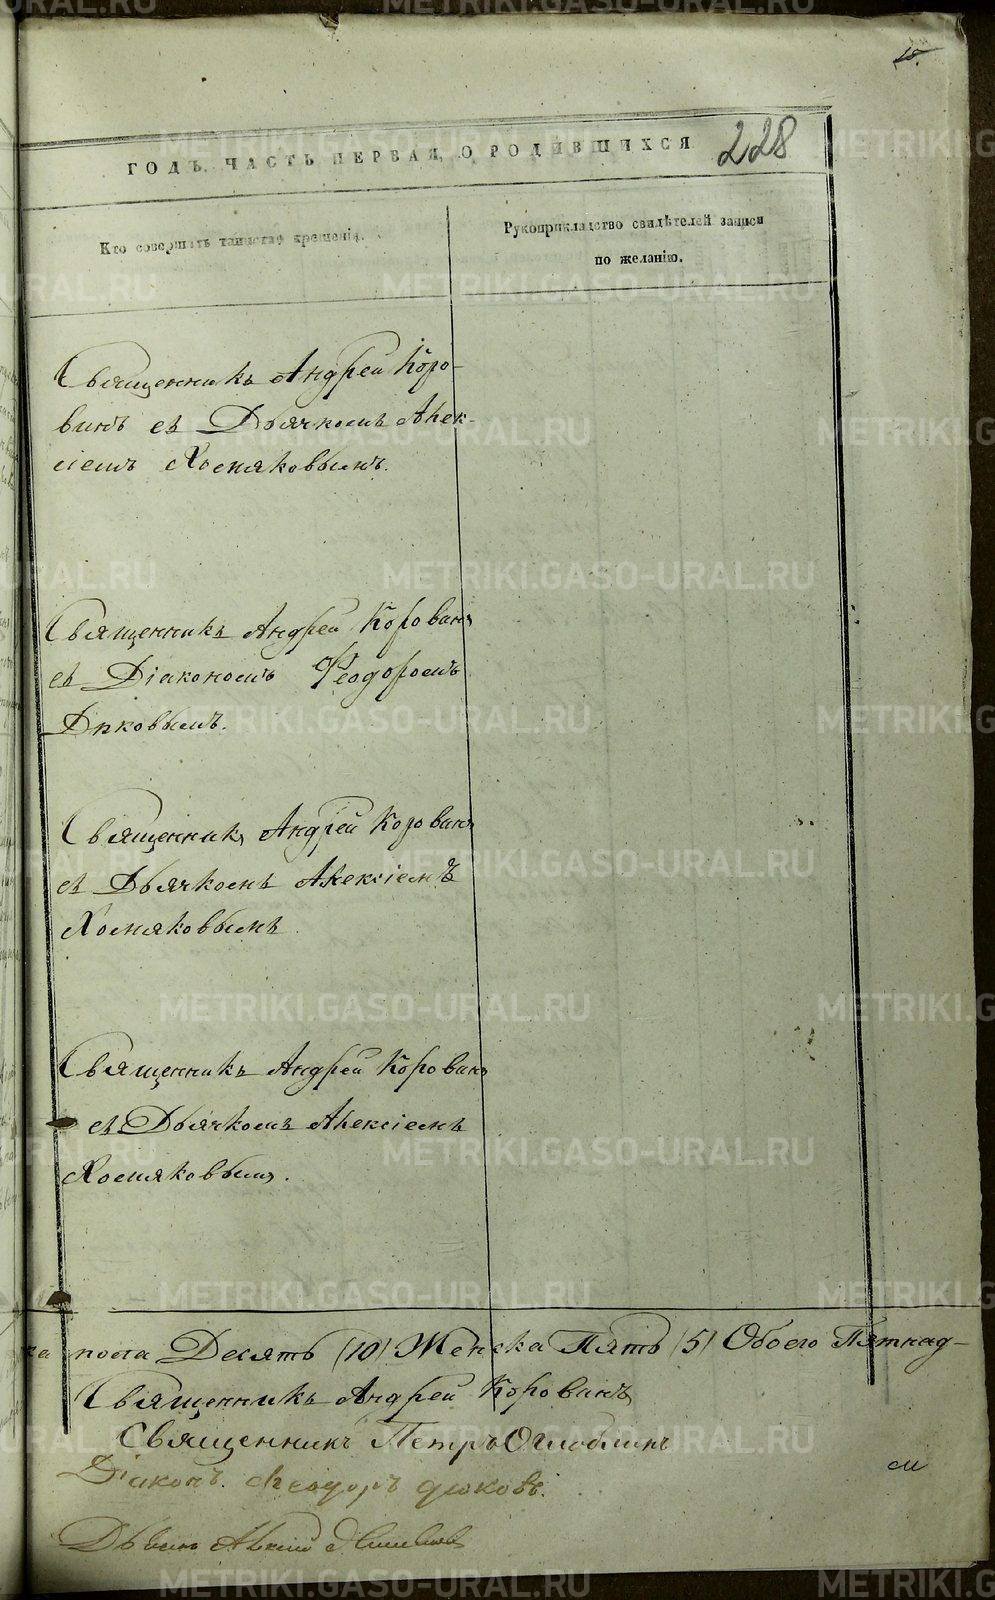 15.
228
ГОДЪ, ЧАСТЬ ПЕРВАЯ, О РОДИВШИХСЯ
Кто совершалъ таинство крещенія.
Рукоприкладство свидѣтелей записи
по желанію.
Священникъ Андрей Коро-
винъ съ Дьячкомъ Алек-
сіемъ Хомяковымъ.
Священникъ Андрей Коровинъ
съ Діакономъ Ѳеодоромъ
Дюковымъ.
Священникъ Андрей Коровинъ
съ Дьячкомъ Алексіемъ
Хомяковымъ
Священникъ Андрей Коровинъ
съ Дьячкомъ Алексіемъ
Хомяковымъ.
ка пола Десять (10) Женска Пять (5) Обоего Пятнад-
Священникъ Андрей Коровинъ
Священникъ Петръ Оглоблинъ
Діаконъ Ѳеодоръ Дюковъ.
METRIKI.GASO-URAL.RU